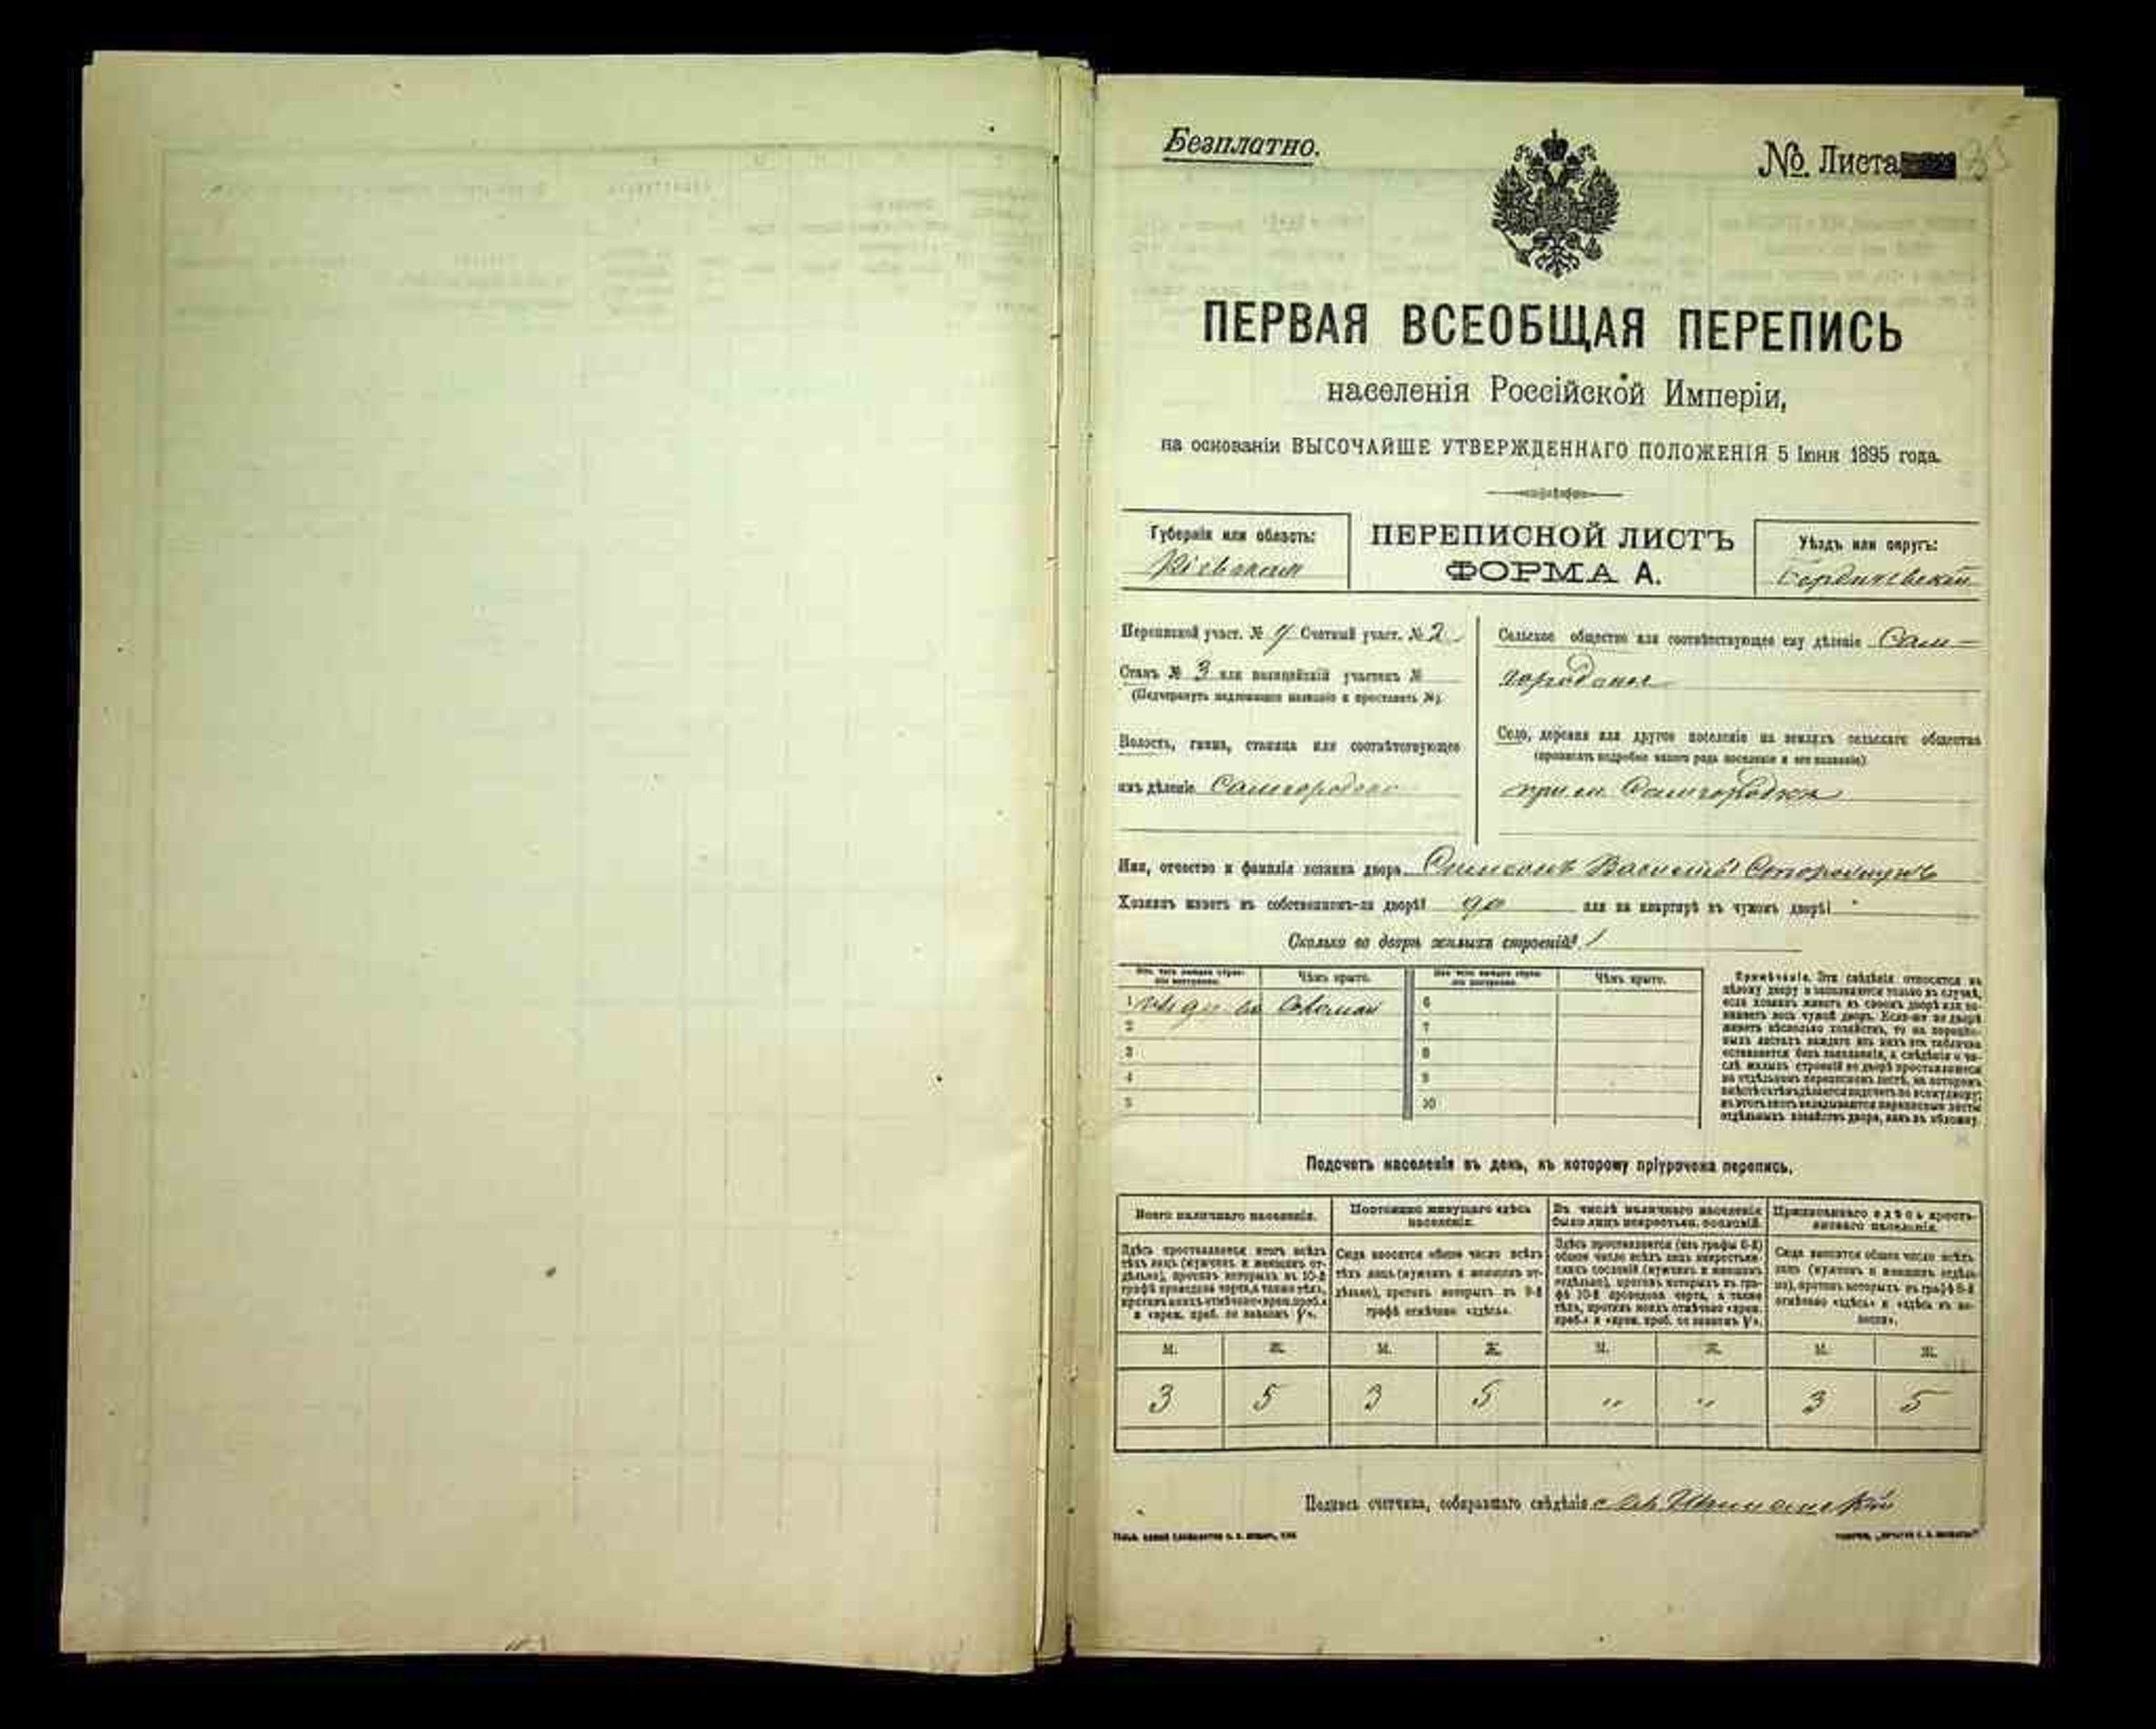 Безплатно.
№ Листа
ПЕРВАЯ ВСЕОБЩАЯ ПЕРЕПИСЬ
населенія Россійской Имперіи,
на основаніи ВЫСОЧАЙШЕ УТВЕРЖДЕННАГО ПОЛОЖЕНІЯ 5 Іюня 1895 года.
Губернія или область:
Кіевская
ПЕРЕПИСНОЙ ЛИСТЪ
ФОРМА А.
Уѣздъ или округъ:
Бердичевскій
Переписной участ. № Счетный участ. № 2
Станъ № 3 или полицейскій участокъ №
(Подчеркнуть надлежащее названіе и проставить №).
Волость, гмина, станица или соотвѣтствующее
имъ дѣленіе
Сельское общество или соотвѣтствующее ему дѣленіе Сам-
городское
Село, деревня или другое поселеніе на земляхъ сельскаго общества
(прописать подробно какого рода поселеніе и его названіе)
при м. Самгородкѣ
Имя, отчество и фамилія хозяина двора
Хозяинъ живетъ въ собственномъ-ли дворѣ? да или на квартирѣ въ чужомъ дворѣ?
Сколько во дворѣ жилыхъ строеній? 1
Изъ чего каждое строе-
ніе построено.
Чѣмъ крыто.
Изъ чего каждое строе-
ніе построено.
Чѣмъ крыто.
1 Соломой 6
2 7
3 8
4 9
5 10
Примѣчаніе. Эти свѣдѣнія относятся къ
цѣлому двору и заполняются только въ случаѣ,
если хозяинъ живетъ въ своемъ дворѣ или за-
нимаетъ весь чужой дворъ. Если-же во дворѣ
живетъ нѣсколько хозяйствъ, то на перепис-
ныхъ листахъ каждаго изъ нихъ эта табличка
оставляется безъ заполненія, а свѣдѣнія о чи-
слѣ жилыхъ строеній во дворѣ проставляются
на отдѣльномъ переписномъ листѣ, на которомъ
вмѣстѣ съ тѣмъ дѣлается подсчетъ по всему двору;
въ этотъ листъ вкладываются переписные листы
отдѣльныхъ хозяйствъ двора, какъ въ обложку.
Подсчетъ населенія въ день, къ которому пріурочена перепись.
Всего наличнаго населенія.
Постоянно живущаго здѣсь
населенія.
Въ числѣ наличнаго населенія
было лицъ некрестьян. сословій.
Приписаннаго здѣсь кресть-
янскаго населенія.
Здѣсь проставляется итогъ всѣхъ
тѣхъ лицъ (мужчинъ и женщинъ от-
дѣльно), противъ которыхъ въ 10-й
графѣ проведена черта, а также тѣхъ,
противъ коихъ отмѣчено «врем. преб.»
и «врем. преб. со знакомъ V».
Сюда вносится общее число всѣхъ
тѣхъ лицъ (мужчинъ и женщинъ от-
дѣльно), противъ которыхъ въ 9-й
графѣ отмѣчено «здѣсь».
Здѣсь проставляется (изъ графы 6-й)
общее число всѣхъ лицъ некрестьян-
скихъ сословій (мужчинъ и женщинъ
отдѣльно), противъ которыхъ въ гра-
фѣ 10-й проведена черта, а также
тѣхъ, противъ коихъ отмѣчено «врем.
преб.» и «врем. преб. со знакомъ V».
Сюда вносится общее число всѣхъ
лицъ (мужчинъ и женщинъ отдѣль-
но), противъ которыхъ въ графѣ 8-й
отмѣчено «здѣсь» и «здѣсь въ во-
лости».
М. Ж. М. Ж. М. Ж. М. Ж.
3 5 3 5 " " 3 5
Подпись счетчика, собиравшаго свѣдѣнія